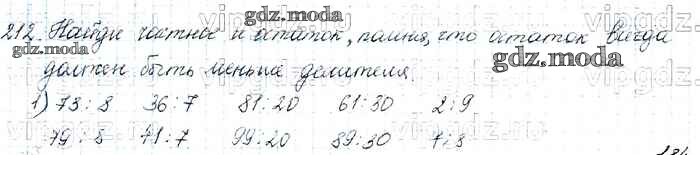 gdz.moda
212. Найди частное и остаток, помня, что остаток всегда
должен быть меньше делителя.
gdz.moda
1) 73:8 36:7 81:20 61:30 2:9
79:8 41:7 99:20 89:30 7:8